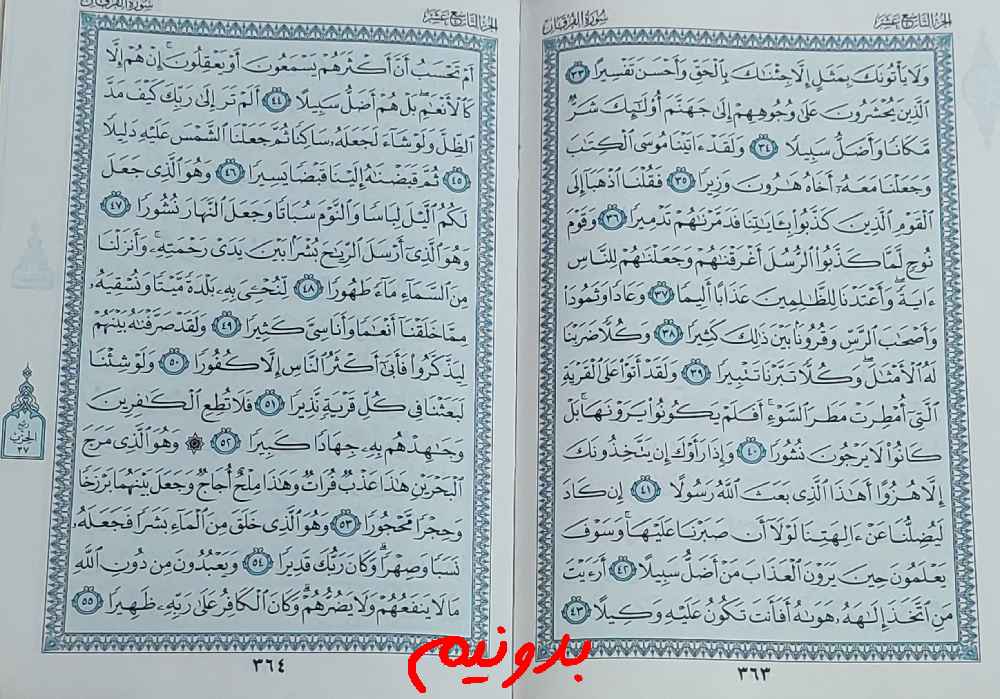 الجزء التاسع عشر
سورة الفرقان
وَلَا يَأْتُونَكَ بِمَثَلٍ إِلَّا جِئْنَٰكَ بِٱلْحَقِّ وَأَحْسَنَ تَفْسِيرًا ٣٣
ٱلَّذِينَ يُحْشَرُونَ عَلَىٰ وُجُوهِهِمْ إِلَىٰ جَهَنَّمَ أُو۟لَٰٓئِكَ شَرٌّ
مَّكَانًا وَأَضَلُّ سَبِيلًا ٣٤ وَلَقَدْ ءَاتَيْنَا مُوسَى ٱلْكِتَٰبَ
وَجَعَلْنَا مَعَهُۥٓ أَخَاهُ هَٰرُونَ وَزِيرًا ٣٥ فَقُلْنَا ٱذْهَبَآ إِلَى
ٱلْقَوْمِ ٱلَّذِينَ كَذَّبُوا۟ بِـَٔايَٰتِنَا فَدَمَّرْنَٰهُمْ تَدْمِيرًا ٣٦ وَقَوْمَ
نُوحٍ لَّمَّا كَذَّبُوا۟ ٱلرُّسُلَ أَغْرَقْنَٰهُمْ وَجَعَلْنَٰهُمْ لِلنَّاسِ
ءَايَةً وَأَعْتَدْنَا لِلظَّٰلِمِينَ عَذَابًا أَلِيمًا ٣٧ وَعَادًا وَثَمُودَا۟
وَأَصْحَٰبَ ٱلرَّسِّ وَقُرُونًۢا بَيْنَ ذَٰلِكَ كَثِيرًا ٣٨ وَكُلًّا ضَرَبْنَا
لَهُ ٱلْأَمْثَٰلَ وَكُلًّا تَبَّرْنَا تَتْبِيرًا ٣٩ وَلَقَدْ أَتَوْا۟ عَلَى ٱلْقَرْيَةِ
ٱلَّتِىٓ أُمْطِرَتْ مَطَرَ ٱلسَّوْءِ أَفَلَمْ يَكُونُوا۟ يَرَوْنَهَا بَلْ
كَانُوا۟ لَا يَرْجُونَ نُشُورًا ٤٠ وَإِذَا رَأَوْكَ إِن يَتَّخِذُونَكَ
إِلَّا هُزُوًا أَهَٰذَا ٱلَّذِى بَعَثَ ٱللَّهُ رَسُولًا ٤١ إِن كَادَ
لَيُضِلُّنَا عَنْ ءَالِهَتِنَا لَوْلَآ أَن صَبَرْنَا عَلَيْهَا وَسَوْفَ
يَعْلَمُونَ حِينَ يَرَوْنَ ٱلْعَذَابَ مَنْ أَضَلُّ سَبِيلًا ٤٢ أَرَءَيْتَ
مَنِ ٱتَّخَذَ إِلَٰهَهُۥ هَوَىٰهُ أَفَأَنتَ تَكُونُ عَلَيْهِ وَكِيلًا ٤٣
٣٦٣
الجزء التاسع عشر
سورة الفرقان
أَمْ تَحْسَبُ أَنَّ أَكْثَرَهُمْ يَسْمَعُونَ أَوْ يَعْقِلُونَ إِنْ هُمْ إِلَّا
كَٱلْأَنْعَٰمِ بَلْ هُمْ أَضَلُّ سَبِيلًا ٤٤ أَلَمْ تَرَ إِلَىٰ رَبِّكَ كَيْفَ مَدَّ
ٱلظِّلَّ وَلَوْ شَآءَ لَجَعَلَهُۥ سَاكِنًا ثُمَّ جَعَلْنَا ٱلشَّمْسَ عَلَيْهِ دَلِيلًا
٤٥ ثُمَّ قَبَضْنَٰهُ إِلَيْنَا قَبْضًا يَسِيرًا ٤٦ وَهُوَ ٱلَّذِى جَعَلَ
لَكُمُ ٱلَّيْلَ لِبَاسًا وَٱلنَّوْمَ سُبَاتًا وَجَعَلَ ٱلنَّهَارَ نُشُورًا ٤٧
وَهُوَ ٱلَّذِىٓ أَرْسَلَ ٱلرِّيَٰحَ بُشْرًۢا بَيْنَ يَدَىْ رَحْمَتِهِۦ وَأَنزَلْنَا
مِنَ ٱلسَّمَآءِ مَآءً طَهُورًا ٤٨ لِّنُحْـِۧىَ بِهِۦ بَلْدَةً مَّيْتًا وَنُسْقِيَهُۥ
مِمَّا خَلَقْنَآ أَنْعَٰمًا وَأَنَاسِىَّ كَثِيرًا ٤٩ وَلَقَدْ صَرَّفْنَٰهُ بَيْنَهُمْ
لِيَذَّكَّرُوا۟ فَأَبَىٰٓ أَكْثَرُ ٱلنَّاسِ إِلَّا كُفُورًا ٥٠ وَلَوْ شِئْنَا
لَبَعَثْنَا فِى كُلِّ قَرْيَةٍ نَّذِيرًا ٥١ فَلَا تُطِعِ ٱلْكَٰفِرِينَ
وَجَٰهِدْهُم بِهِۦ جِهَادًا كَبِيرًا ٥٢ ۞ وَهُوَ ٱلَّذِى مَرَجَ
ٱلْبَحْرَيْنِ هَٰذَا عَذْبٌ فُرَاتٌ وَهَٰذَا مِلْحٌ أُجَاجٌ وَجَعَلَ بَيْنَهُمَا بَرْزَخًا
وَحِجْرًا مَّحْجُورًا ٥٣ وَهُوَ ٱلَّذِى خَلَقَ مِنَ ٱلْمَآءِ بَشَرًا فَجَعَلَهُۥ
نَسَبًا وَصِهْرًا وَكَانَ رَبُّكَ قَدِيرًا ٥٤ وَيَعْبُدُونَ مِن دُونِ ٱللَّهِ
مَا لَا يَنفَعُهُمْ وَلَا يَضُرُّهُمْ وَكَانَ ٱلْكَافِرُ عَلَىٰ رَبِّهِۦ ظَهِيرًا ٥٥
ربع
الحزب
٣٧
٣٦٤
بدونيم